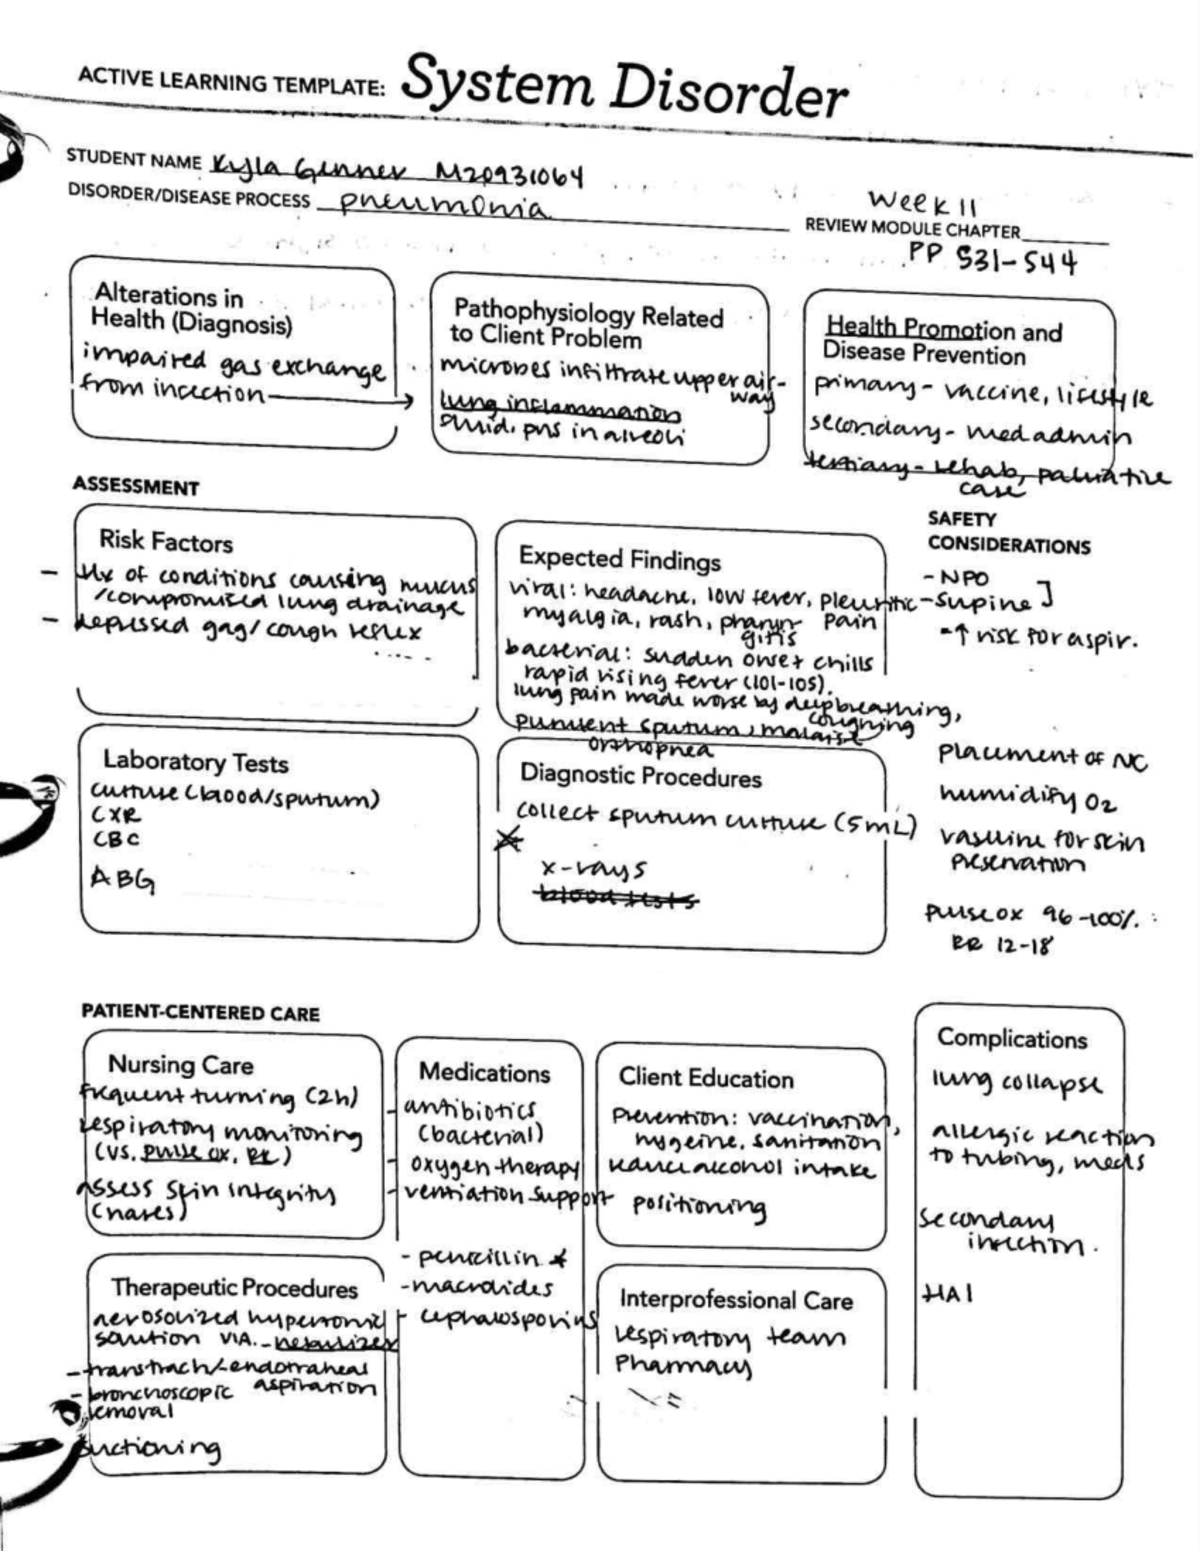 ACTIVE LEARNING TEMPLATE: System Disorder
STUDENT NAME Kyla Genner M20931064
DISORDER/DISEASE PROCESS pneumonia
Week 11
REVIEW MODULE CHAPTER
PP 531-544
Alterations in
Health (Diagnosis)
impaired gas exchange
from infection
Pathophysiology Related
to Client Problem
microbes infiltrate upper air-
way
lung inflammation
fluid, pus in alveoli
Health Promotion and
Disease Prevention
primary - vaccine, lifestyle
secondary - med admin
tertiary - rehab, palliative
care
ASSESSMENT
Risk Factors
- Hx of conditions causing mucus
/compromised lung drainage
- depressed gag/cough reflex
Expected Findings
viral: headache, low fever, pleuritic
myalgia, rash, pharyn- pain
gitis
bacterial: sudden onset chills
rapid rising fever (101-105).
lung pain made worse by deep breathing,
coughing
purulent sputum, malaise
orthopnea
SAFETY
CONSIDERATIONS
- NPO
- supine ]
- ↑ risk for aspir.
Placement of NC
humidify O2
vaseline for skin
preservation
pulse ox 96-100%.
RR 12-18
Laboratory Tests
culture (blood/sputum)
CXR
CBC
ABG
Diagnostic Procedures
collect sputum culture (5mL)
x-rays
blood tests
PATIENT-CENTERED CARE
Nursing Care
frequent turning (2h)
respiratory monitoring
(VS, pulse ox, RR)
assess skin integrity
(nares)
Medications
- antibiotics
(bacterial)
- oxygen therapy
- ventilation support
- penicillin *
- macrolides
- cephalosporins
Client Education
prevention: vaccination,
hygeine, sanitation
reduce alcohol intake
positioning
Complications
lung collapse
allergic reaction
to tubing, meds
secondary
infection.
HAI
Therapeutic Procedures
aerosolized hypertonic
solution VIA. nebulizer
- transtrach/endotraheal
aspiration
- bronchoscopic
removal
suctioning
Interprofessional Care
respiratory team
Pharmacy